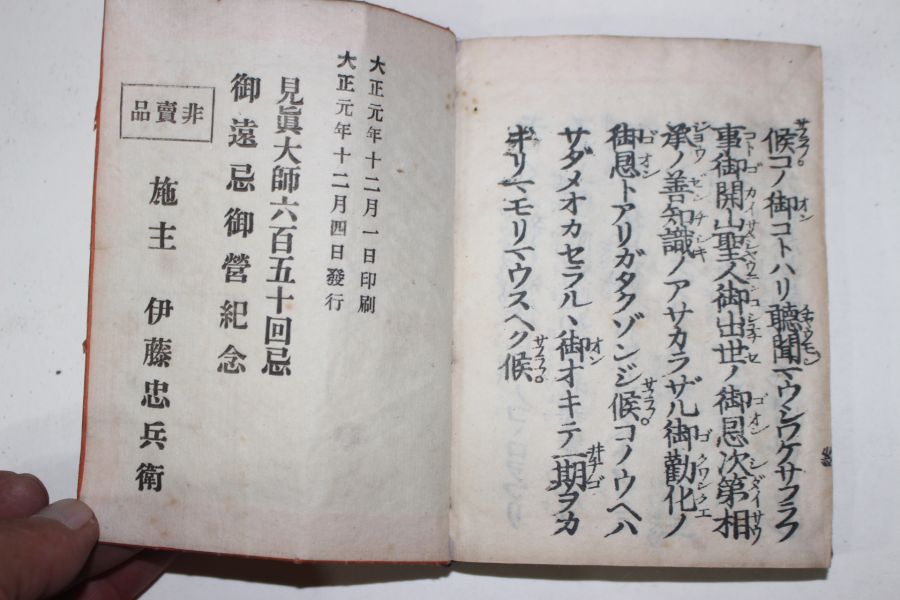 候コノ御コトハリ聴聞マウシワケサフラフ
事御開山聖人御出世ノ御恩次第相
承ノ善知識ノアサカラザル御勸化ノ
御恩トアリガタクゾンジ候コノウヘハ
サダメオカセラルヽ御オキテ一期ヲカ
ギリマモリマウスヘク候
大正元年十二月一日印刷
大正元年十二月四日發行
見眞大師六百五十回忌
御遠忌御營紀念
非賣品
施主 伊藤忠兵衛